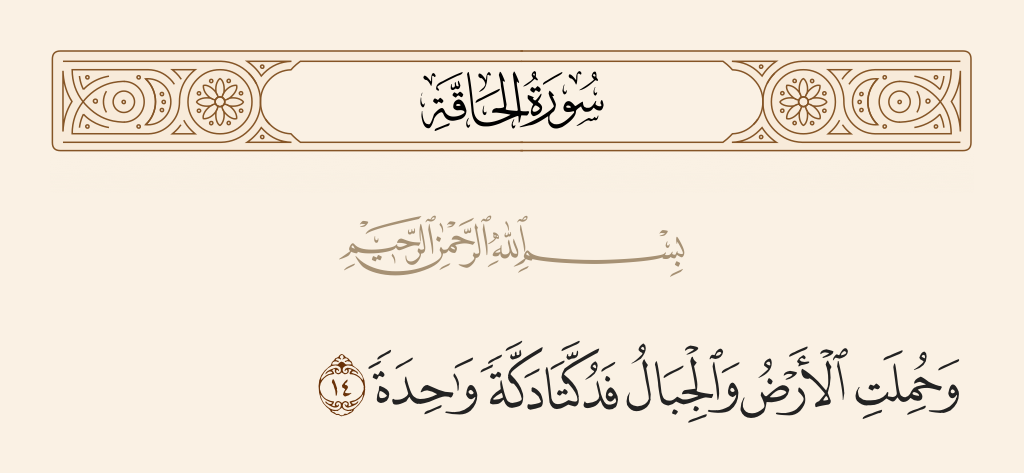 سُورَةُ الحَاقَّةِ
بِسْمِ ٱللَّهِ ٱلرَّحْمَٰنِ ٱلرَّحِيمِ
وَحُمِلَتِ ٱلْأَرْضُ وَٱلْجِبَالُ فَدُكَّتَا دَكَّةً وَٰحِدَةً ١٤